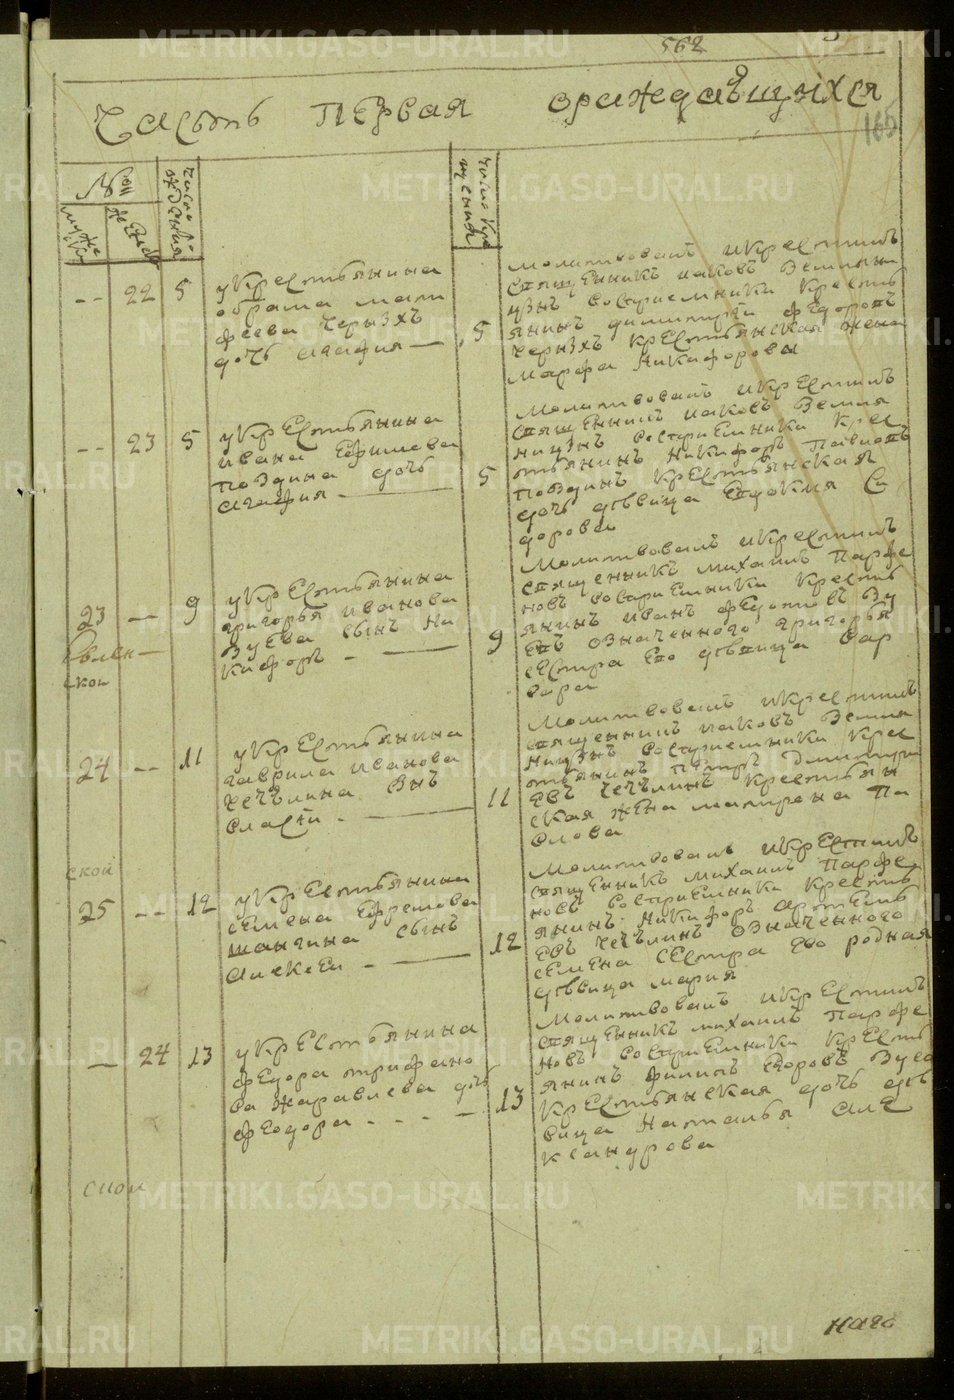 562
Часть первая ораждавщихся
165
№ои
муже
женс
число ро
ждения
число кре
щения
-- 22 5
у крестьянина
абрама мат
феева черызхъ
дочь агафия
5
молитвовалъ икрестилъ
священникъ иаковъ Земляни
цынъ восприемники кресть
янинъ димитрий федоровъ
черызхъ крестьянская жена
марфа Никифорова
-- 23 5
у крестьянина
ивана Ефимова
поздина дочь
агафия
5
Молитвовалъ икрестилъ
священникъ иаковъ Земля
ницынъ восприемники крес
тьянинъ Никифоръ Павловъ
поздинъ крестьянская
дочь девица Евдокия Си
дорова
23 -- 9
у крестьянина
григорья иванова
Зуева сынъ Ни
кифоръ
9
Молитвовалъ икрестилъ
священникъ михаилъ Парфе
новъ восприемники кресть
янинъ иванъ федотовъ Зу
евъ означенного григорья
сестра Его девица вар
вара
ской
24 -- 11
у крестьянина
гаврила иванова
чечулина сынъ
власей
11
Молитвовалъ икрестилъ
священникъ иаковъ Земля
ницынъ восприемники крес
тьянинъ Пётръ Димитри
евъ чечулинъ крестьян
ская жена матрена Па
влова
ской
25 -- 12
у крестьянина
семена Ефремова
шангина сынъ
алексеи
12
Молитвовалъ икрестилъ
священникъ михаилъ Парфе
новъ восприемники кресть
янинъ Никифоръ артемь
евъ чечулинъ означенного
семена сестра Его родная
девица мария
-- 24 13
у крестьянина
федора трифано
ва жаравлева дочь
феодора
13
Молитвовалъ икрестилъ
священникъ михаилъ Парфе
новъ восприемники кресть
янинъ филипъ Егоровъ Зуев
крестьянская дочь де
вица Наталья але
ксандрова
ской
наго
METRIKI.GASO-URAL.RU